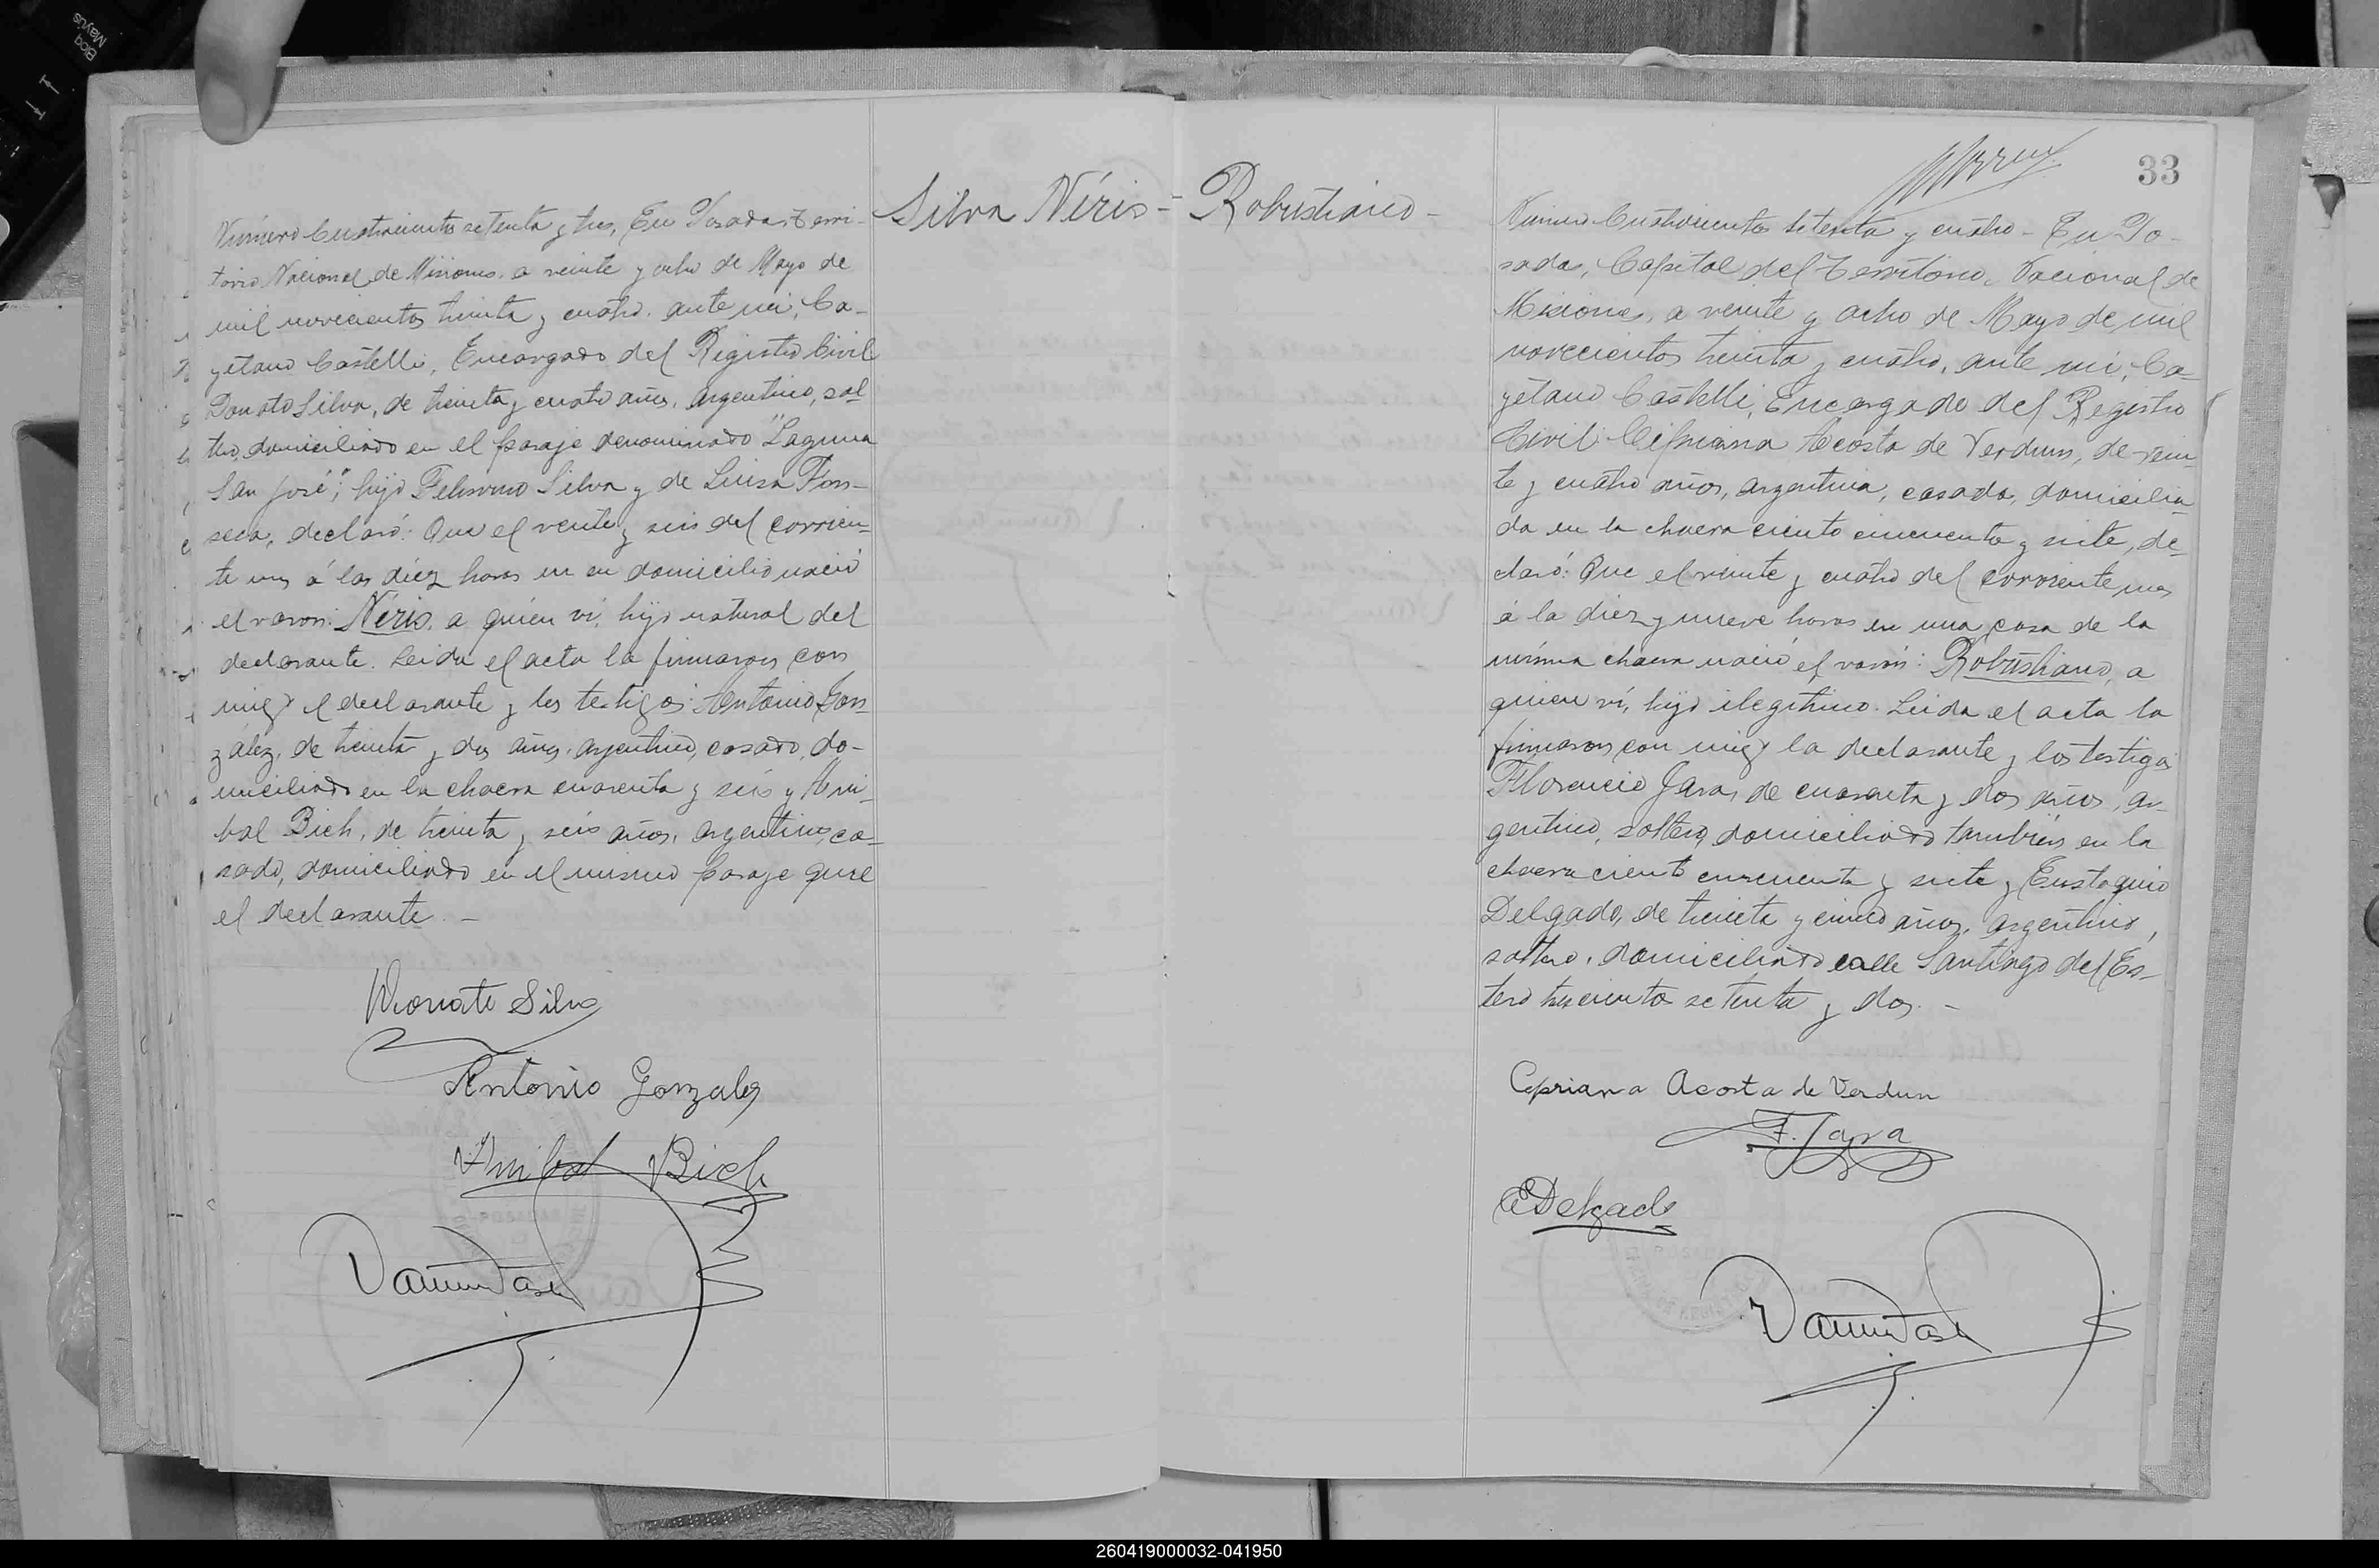 Silva Néris -
Número Cuatrocientos setenta y tres, En Posadas, Terri-
torio Nacional de Misiones, a veinte y ocho de Mayo de
mil novecientos treinta y cuatro, ante mi, Ca-
yetano Castelli, Encargado del Registro Civil
Donato Silva, de treinta y cuatro años, argentino, sol-
tero, domiciliado en el paraje denominado "Laguna
San José"; hijo Silva y de Luisa Fon-
seca, declaró: Que el veinte y seis del corrien-
te mes á las diez horas en su domicilio nació
el varon: Néris, a quién ví, hijo natural del
declarante. Leida el acta la firmaron con
migo el declarante y los testigos: Antonio Gon-
zález, de treinta y dos años, argentino, casado, do-
miciliado en la chacra cuarenta y seis y Ani-
bal Bich, de treinta y seis años, argentino, ca-
sado, domiciliado en el mismo paraje que
el declarante. -
Donato Silva
Antonio Gonzalez
Anibal Bich
33
Robustiano -
Número Cuatrocientos setenta y cuatro - En Po-
sadas, Capital del Territorio Nacional de
Misiones, a veinte y ocho de Mayo de mil
novecientos treinta y cuatro, ante mi, Ca-
yetano Castelli, Encargado del Registro
Civil Cipriana Acosta de Verdun, de vein-
te y cuatro años, argentina, casada, domicilia-
da en la chacra ciento cincuenta y siete, de-
claró: Que el veinte y cuatro del corriente mes
á la diez y nueve horas en una casa de la
misma chacra nació el varón: Robustiano, a
quien ví, hijo ilegítimo. Leida el acta la
firmaron con migo la declarante y los testigos
Florencio Jara, de cuarenta y dos años, ar-
gentino, soltero, domiciliado también en la
chacra ciento cincuenta y siete y Eustaquio
Delgado, de treinta y cinco años, argentino,
soltero, domiciliado calle Santiago del Es-
tero trescientos setenta y dos. -
Cipriana Acosta de Verdun
F. Jara
E Delgado
260419000032-041950